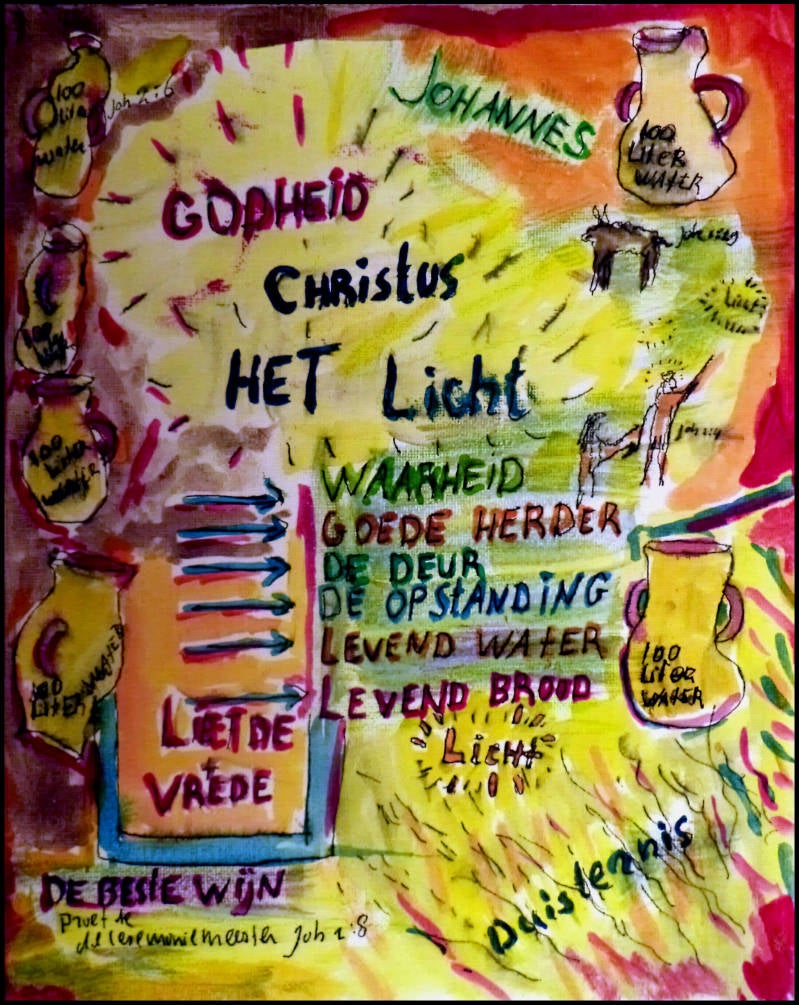 JOHANNES
100
Liter
water
Joh 2:6
100
LiteR
WAteR
GODHEID
CHRistus
HET Licht
Licht
100
100
liter
WAteR
WAARHEiD
GOEDE HERDER
DE DEUR
DE OPStANDiNG
LEVEND WAteR
LEVEND BROOD
Licht
100
LiteR
WAteR
100
LiteR
WAteR
LiEfDE
+
VREDE
DE BEStE WijN
proefde
de ceremoniemeester Joh 2:8
Duisternis